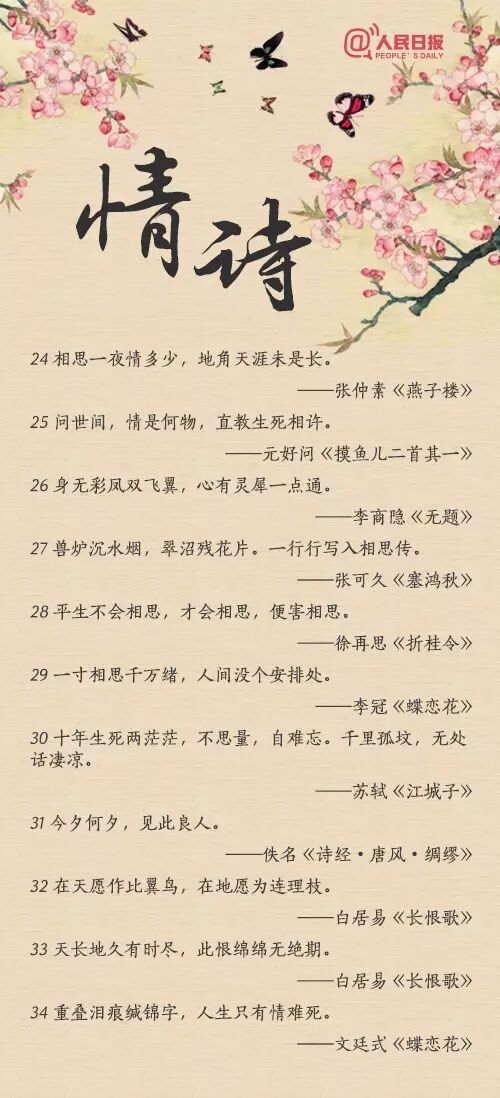 @人民日报
PEOPLE'S DAILY
情诗
24 相思一夜情多少，地角天涯未是长。
——张仲素《燕子楼》
25 问世间，情是何物，直教生死相许。
——元好问《摸鱼儿二首其一》
26 身无彩凤双飞翼，心有灵犀一点通。
——李商隐《无题》
27 兽炉沉水烟，翠沼残花片。一行行写入相思传。
——张可久《塞鸿秋》
28 平生不会相思，才会相思，便害相思。
——徐再思《折桂令》
29 一寸相思千万绪，人间没个安排处。
——李冠《蝶恋花》
30 十年生死两茫茫，不思量，自难忘。千里孤坟，无处
话凄凉。
——苏轼《江城子》
31 今夕何夕，见此良人。
——佚名《诗经·唐风·绸缪》
32 在天愿作比翼鸟，在地愿为连理枝。
——白居易《长恨歌》
33 天长地久有时尽，此恨绵绵无绝期。
——白居易《长恨歌》
34 重叠泪痕缄锦字，人生只有情难死。
——文廷式《蝶恋花》